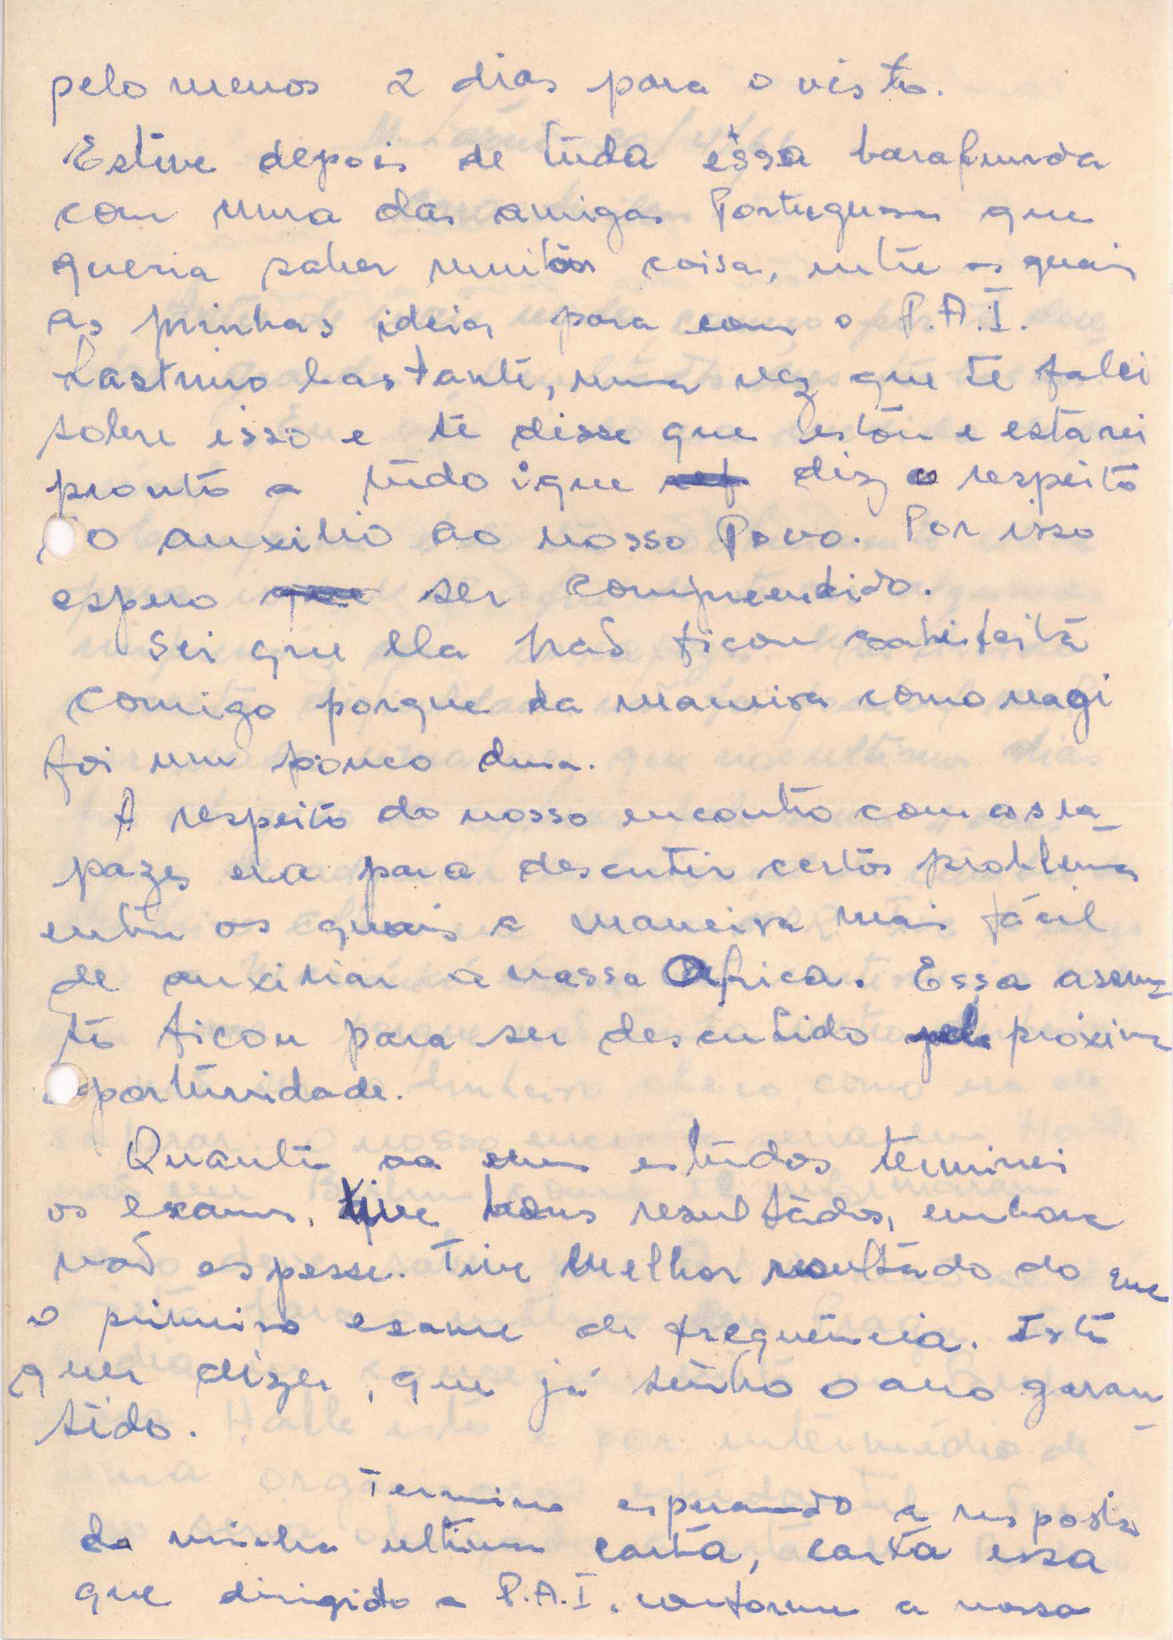 pelo menos 2 dias para o visto.
Estive depois de tuda essa barafunda
com uma das amigas Portuguesas que
queria saber muitas coisa, entre as quais
as minhas ideias para com o P.A.I.
Lastimo bastante, uma vez que te falei
sobre isso e te disse que estou e estarei
pronto a tudo que diz o respeito
o auxilio ao nosso Povo. Por isso
espero que ser compreendido.
Sei que ela naõ ficou satisfeita
comigo porque da maneira como reagi
foi um pouco dura.
A respeito do nosso encontro com os ra-
pazes era para descutir certos problemas
entre os quais a maneira mais fácil
de auxiliar a nossa Africa. Essa asun-
to ficou para ser descutido pela próxima
oportunidade.
Quanto aos meus estudos terminei
os exames, tive bons resultados, embora
naõ espesse. Tive melhor resultado do que
o primeiro exame de frequência. Isto
quer dizer, que já tenho o ano garan-
tido.
Termino esperando a resposta
da minha ultima carta, carta essa
que dirigido a P.A.I. conforme a nossa